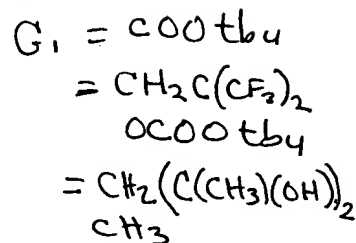 G₁ = COOtbu
= CH₂C(CF₃)₂
OCOOtbu
= CH₂(C(CH₃)(OH))₂
CH₃